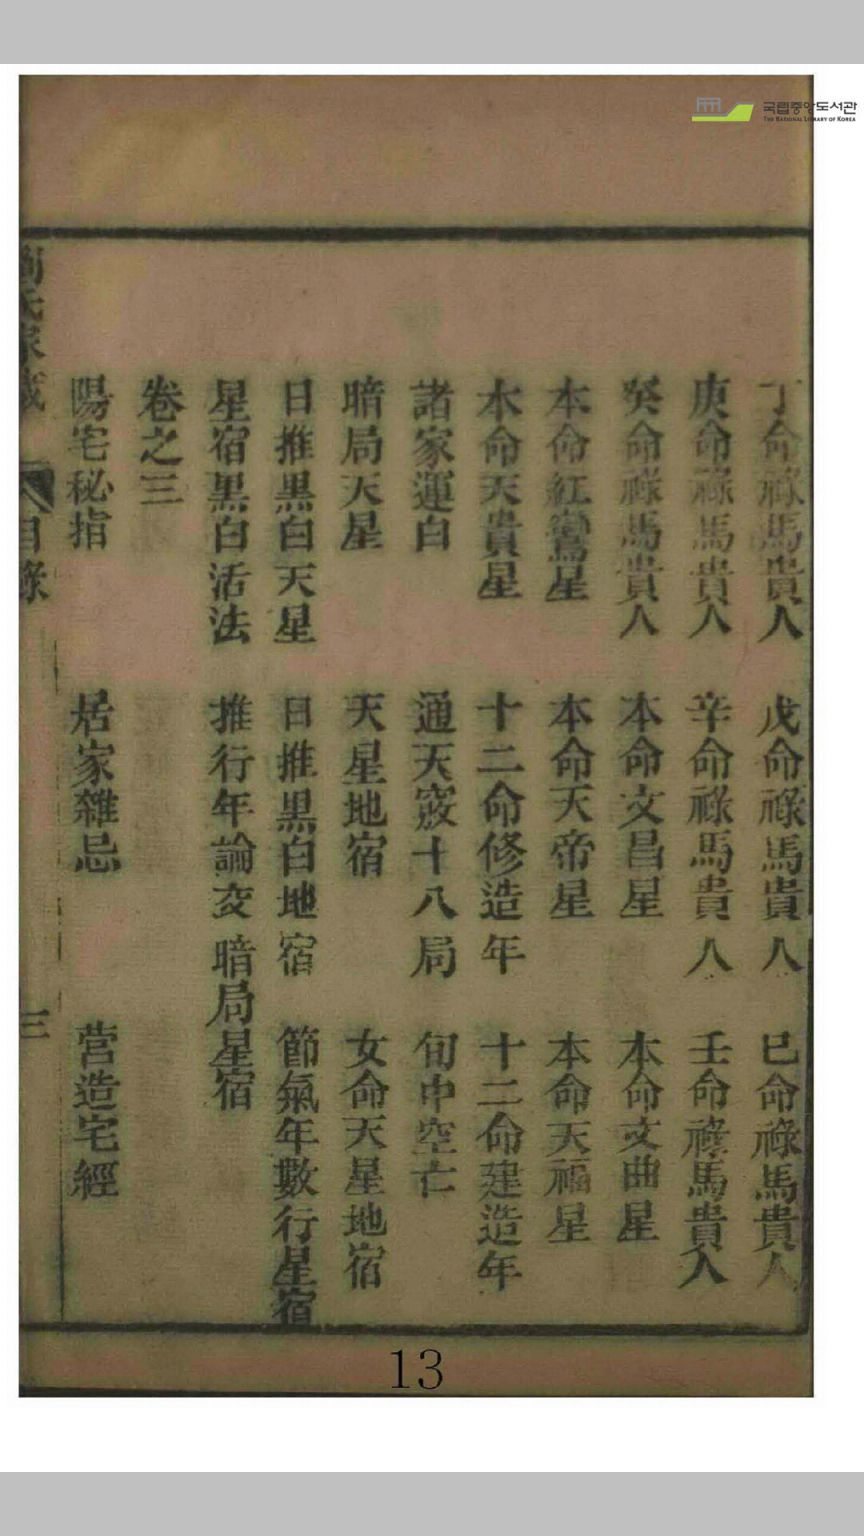 국립중앙도서관
THE NATIONAL LIBRARY OF KOREA
丁命祿馬貴人 戊命祿馬貴人 巳命祿馬貴人
庚命祿馬貴人 辛命祿馬貴人 壬命祿馬貴人
癸命祿馬貴人 本命文昌星 本命文曲星
本命紅鸞星 本命天帝星 本命天福星
本命天貴星 十二命修造年 十二命建造年
諸家運白 通天竅十八局 旬中空亡
暗局天星 天星地宿 女命天星地宿
日推黑白天星 日推黑白地宿 節氣年數行星宿
星宿黑白活法 推行年論交暗局星宿
卷之三
陽宅秘指 居家雜忌 营造宅經
氏家藏 目錄 三
13